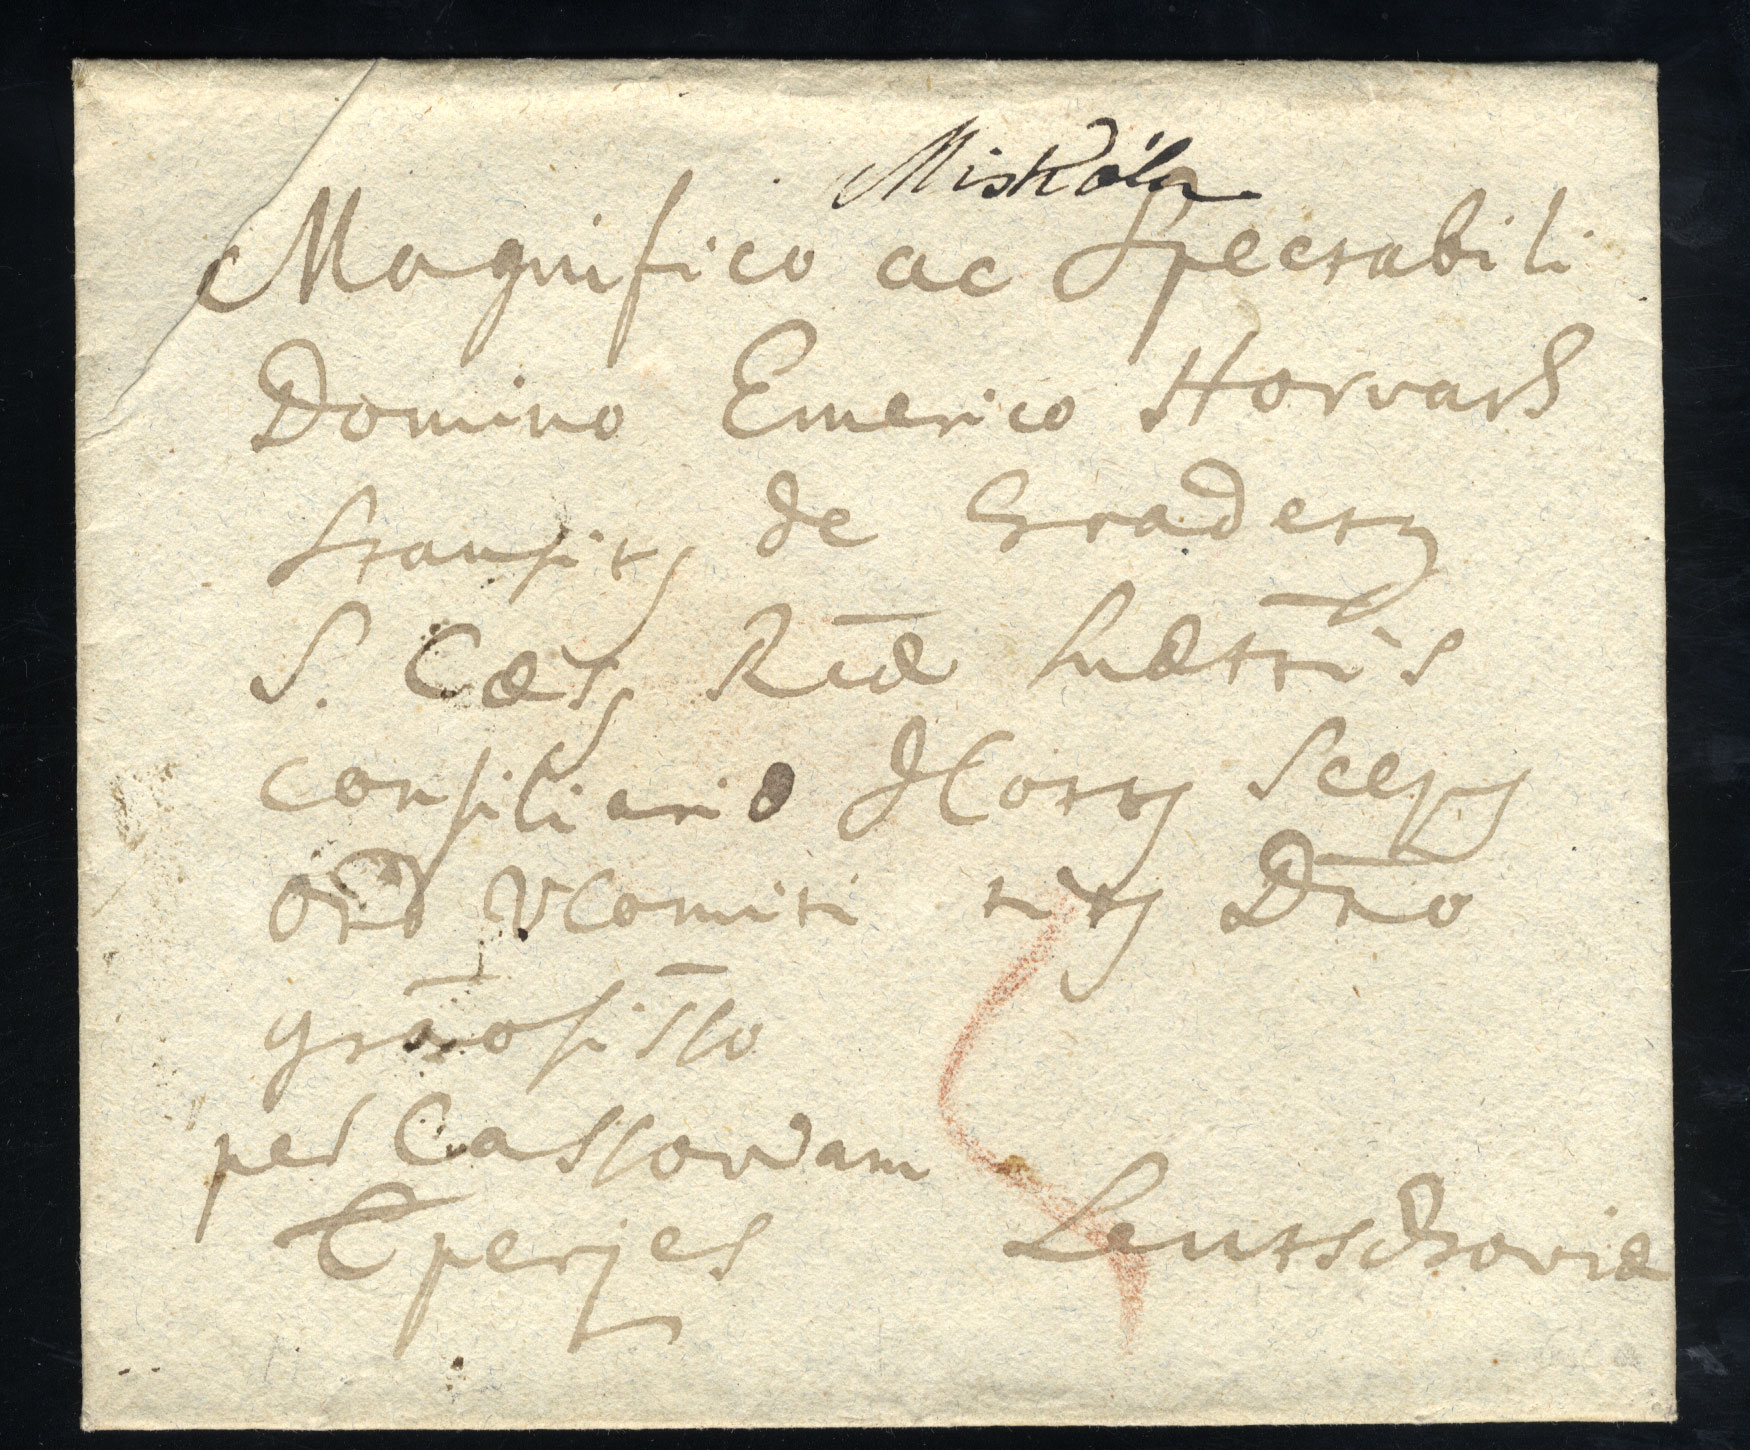 Miskólcz
Magnifico ac Spectabili
Domino Emerico Horvath
Stansith de Gradetz
S. Cæs. Reæ Mattis
consiliario ICottus Scepus
ord VComiti tit. Dno
gratiosissimo
per Cassoviam
Eperjes Leutschoviæ